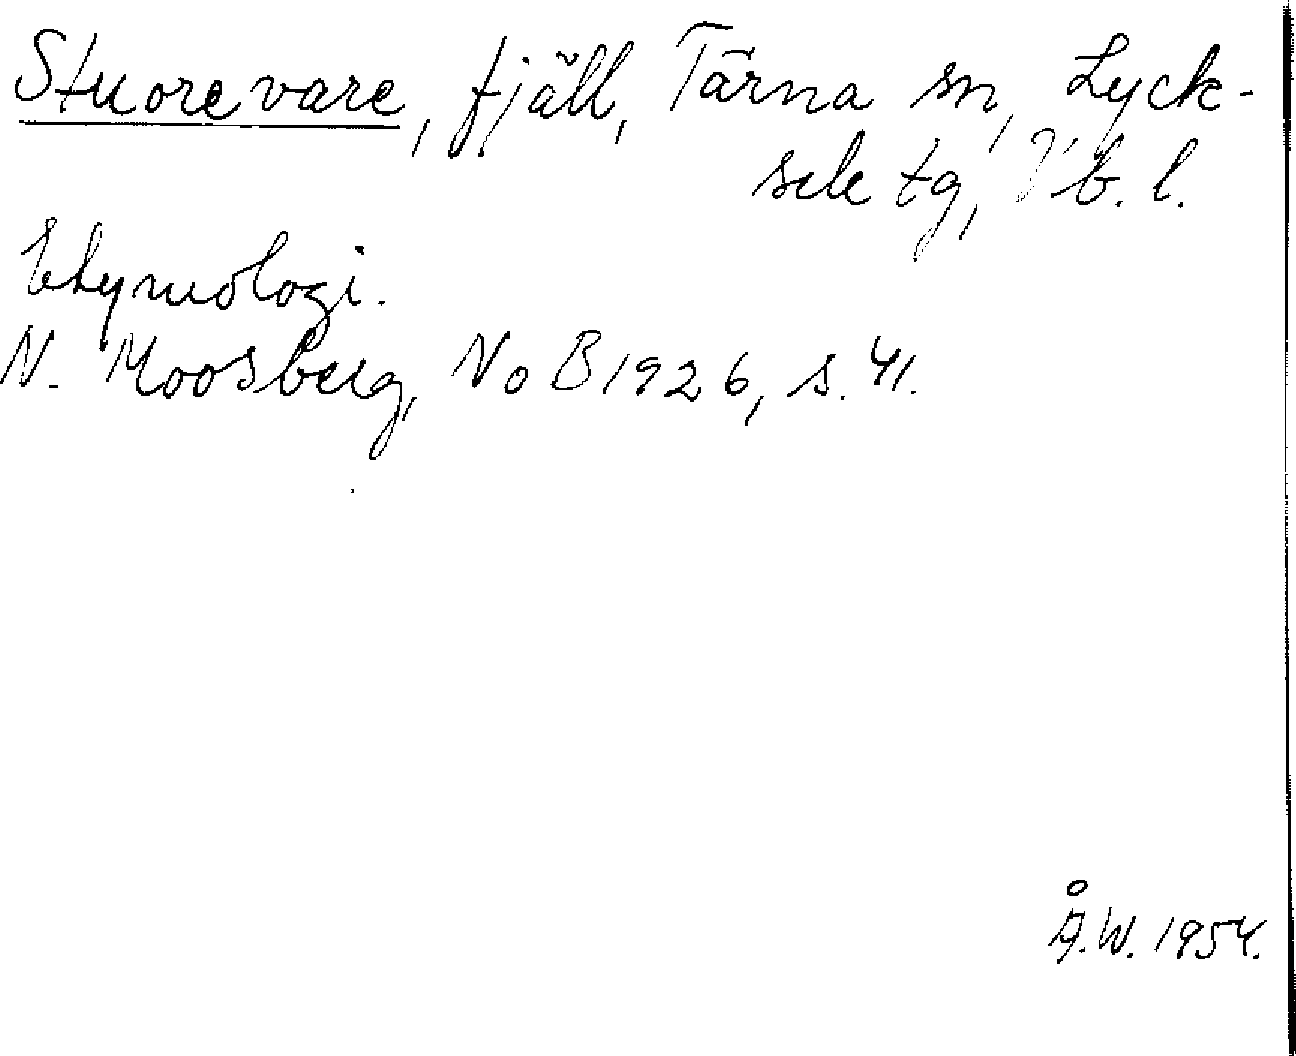 Stuorevare, fjäll, Tärna sn, Lyck-
sele tg, Vb. l.
Etymologi.
N. Moosberg, NoB 1926, s. 41.
Å.W. 1954.